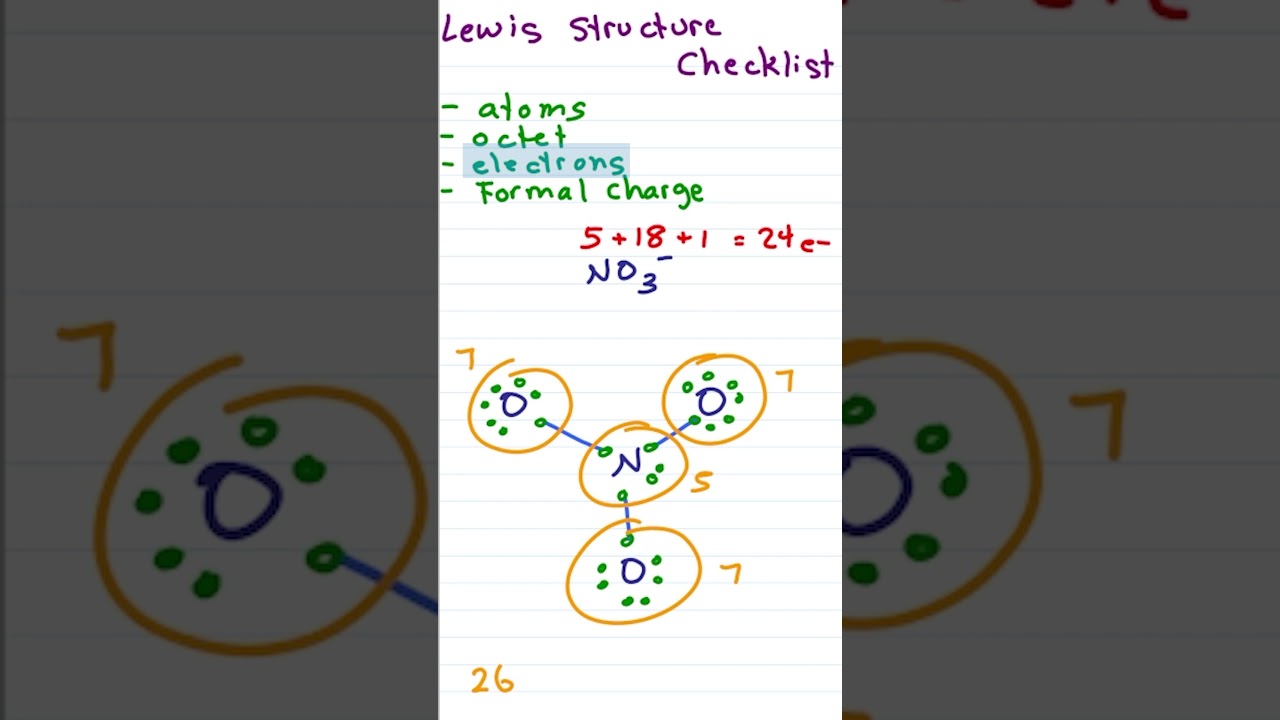 Lewis Structure
Checklist
- atoms
- octet
- electrons
- Formal Charge
5 + 18 + 1 = 24 e-
NO₃⁻
7
O
O
7
N
5
O
7
26
7
O
7